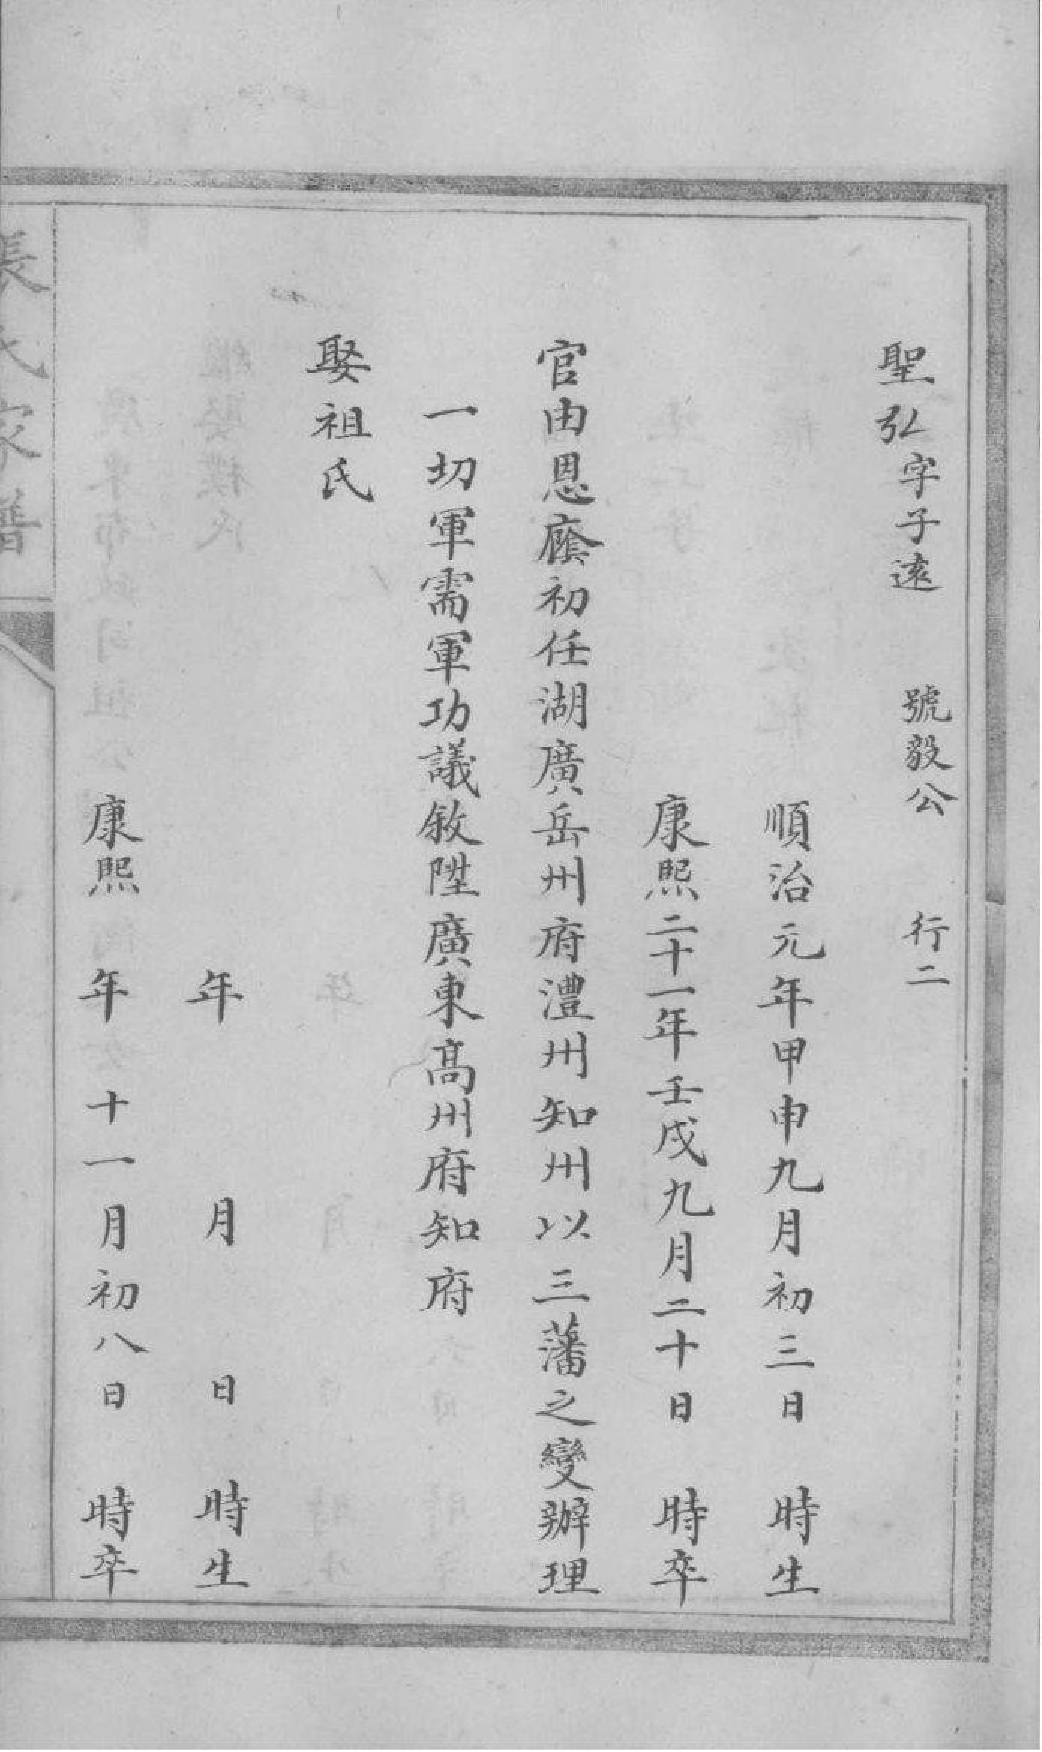 聖弘字子遠　號毅公　行二
順治元年甲申九月初三日　時生
康熙二十一年壬戌九月二十日　時卒
官由恩廕初任湖廣岳州府澧州知州以三藩之變辦理
一切軍需軍功議敘陞廣東高州府知府
娶祖氏
年　月　日　時生
康熙　年　十一月初八日　時卒
張氏家譜